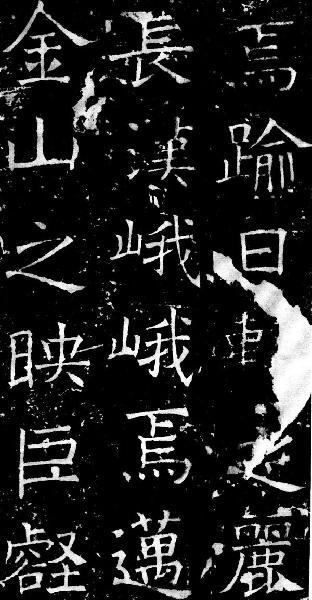 焉踰日之麗
長漢峨峨焉邁
金山之映臣壑